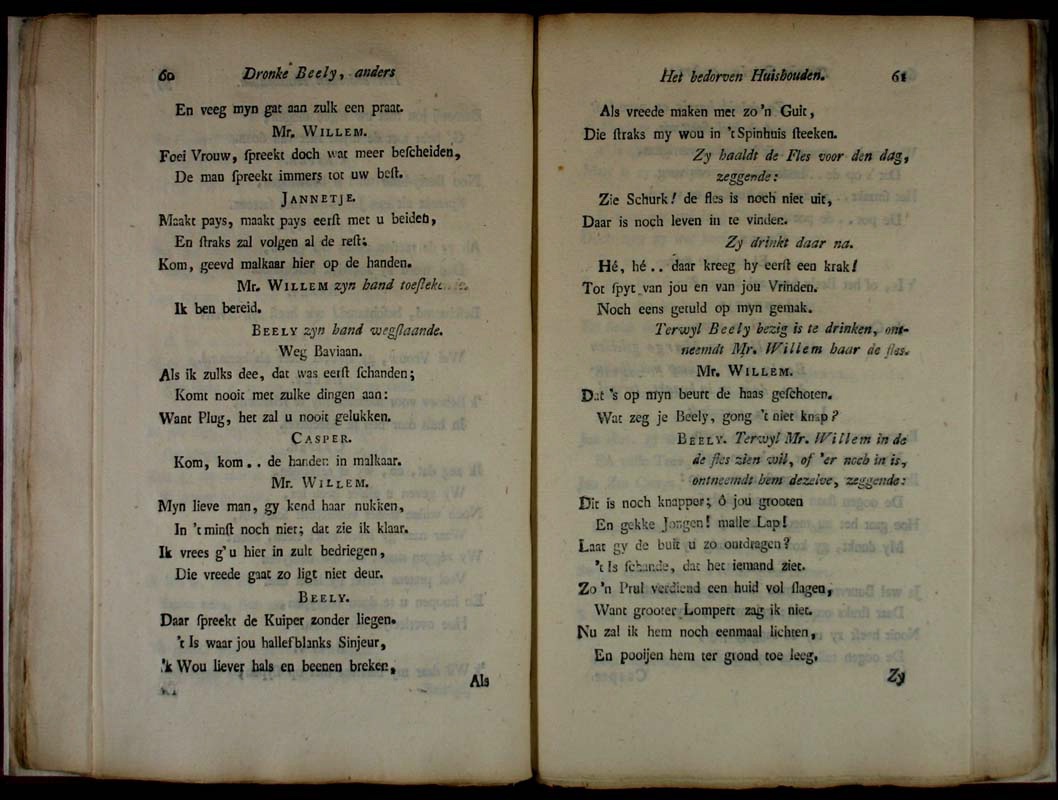 60 Dronke Beely, anders
En veeg myn gat aan zulk een praat.
Mr. WILLEM.
Foei Vrouw, ſpreekt doch wat meer beſcheiden,
De man ſpreekt immers tot uw beſt.
JANNETJE.
Maakt pays, maakt pays eerſt met u beiden,
En ſtraks zal volgen al de reſt;
Kom, geevd malkaar hier op de handen.
Mr. WILLEM zyn hand
Ik ben bereid.
BEELY zyn hand wegſlaande.
Weg Baviaan.
Als ik zulks dee, dat was eerſt ſchanden;
Komt nooit met zulke dingen aan:
Want Plug, het zal u nooit gelukken.
CASPER.
Kom, kom.. de handen in malkaar.
Mr. WILLEM.
Myn lieve man, gy kend haar nukken,
In 't minſt noch niet; dat zie ik klaar.
Ik vrees g'u hier in zult bedriegen,
Die vreede gaat zo ligt niet deur.
BEELY.
Daar ſpreekt de Kuiper zonder liegen.
't Is waar jou hallefblanks Sinjeur,
'k Wou liever hals en beenen breken,
Als
Het bedorven Huishouden. 61
Als vreede maken met zo 'n Guit,
Die ſtraks my wou in 't Spinhuis ſteeken.
Zy haaldt de Fles voor den dag,
zeggende:
Zie Schurk! de fles is noch niet uit,
Daar is noch leven in te vinden.
Zy drinkt daar na.
Hé, hé.. daar kreeg hy eerſt een krak!
Tot ſpyt van jou en van jou Vrinden.
Noch eens getuld op myn gemak.
Terwyl Beely bezig is te drinken, ont-
neemdt Mr. Willem haar de fles.
Mr. WILLEM.
Dat 's op myn beurt de haas geſchoten.
Wat zeg je Beely, gong 't niet knap?
BEELY. Terwyl Mr. Willem in de
de fles zien wil, of 'er noch in is,
ontneemdt hem dezelve, zeggende:
Dit is noch knapper; ô jou grooten
En gekke Jongen! malle Lap!
Laat gy de buit u zo ontdragen?
't Is ſchande, dat het iemand ziet.
Zo 'n Prul verdiend een huid vol ſlagen,
Want grooter Lompert zag ik niet.
Nu zal ik hem noch eenmaal lichten,
En pooijen hem ter grond toe leeg,
Zy